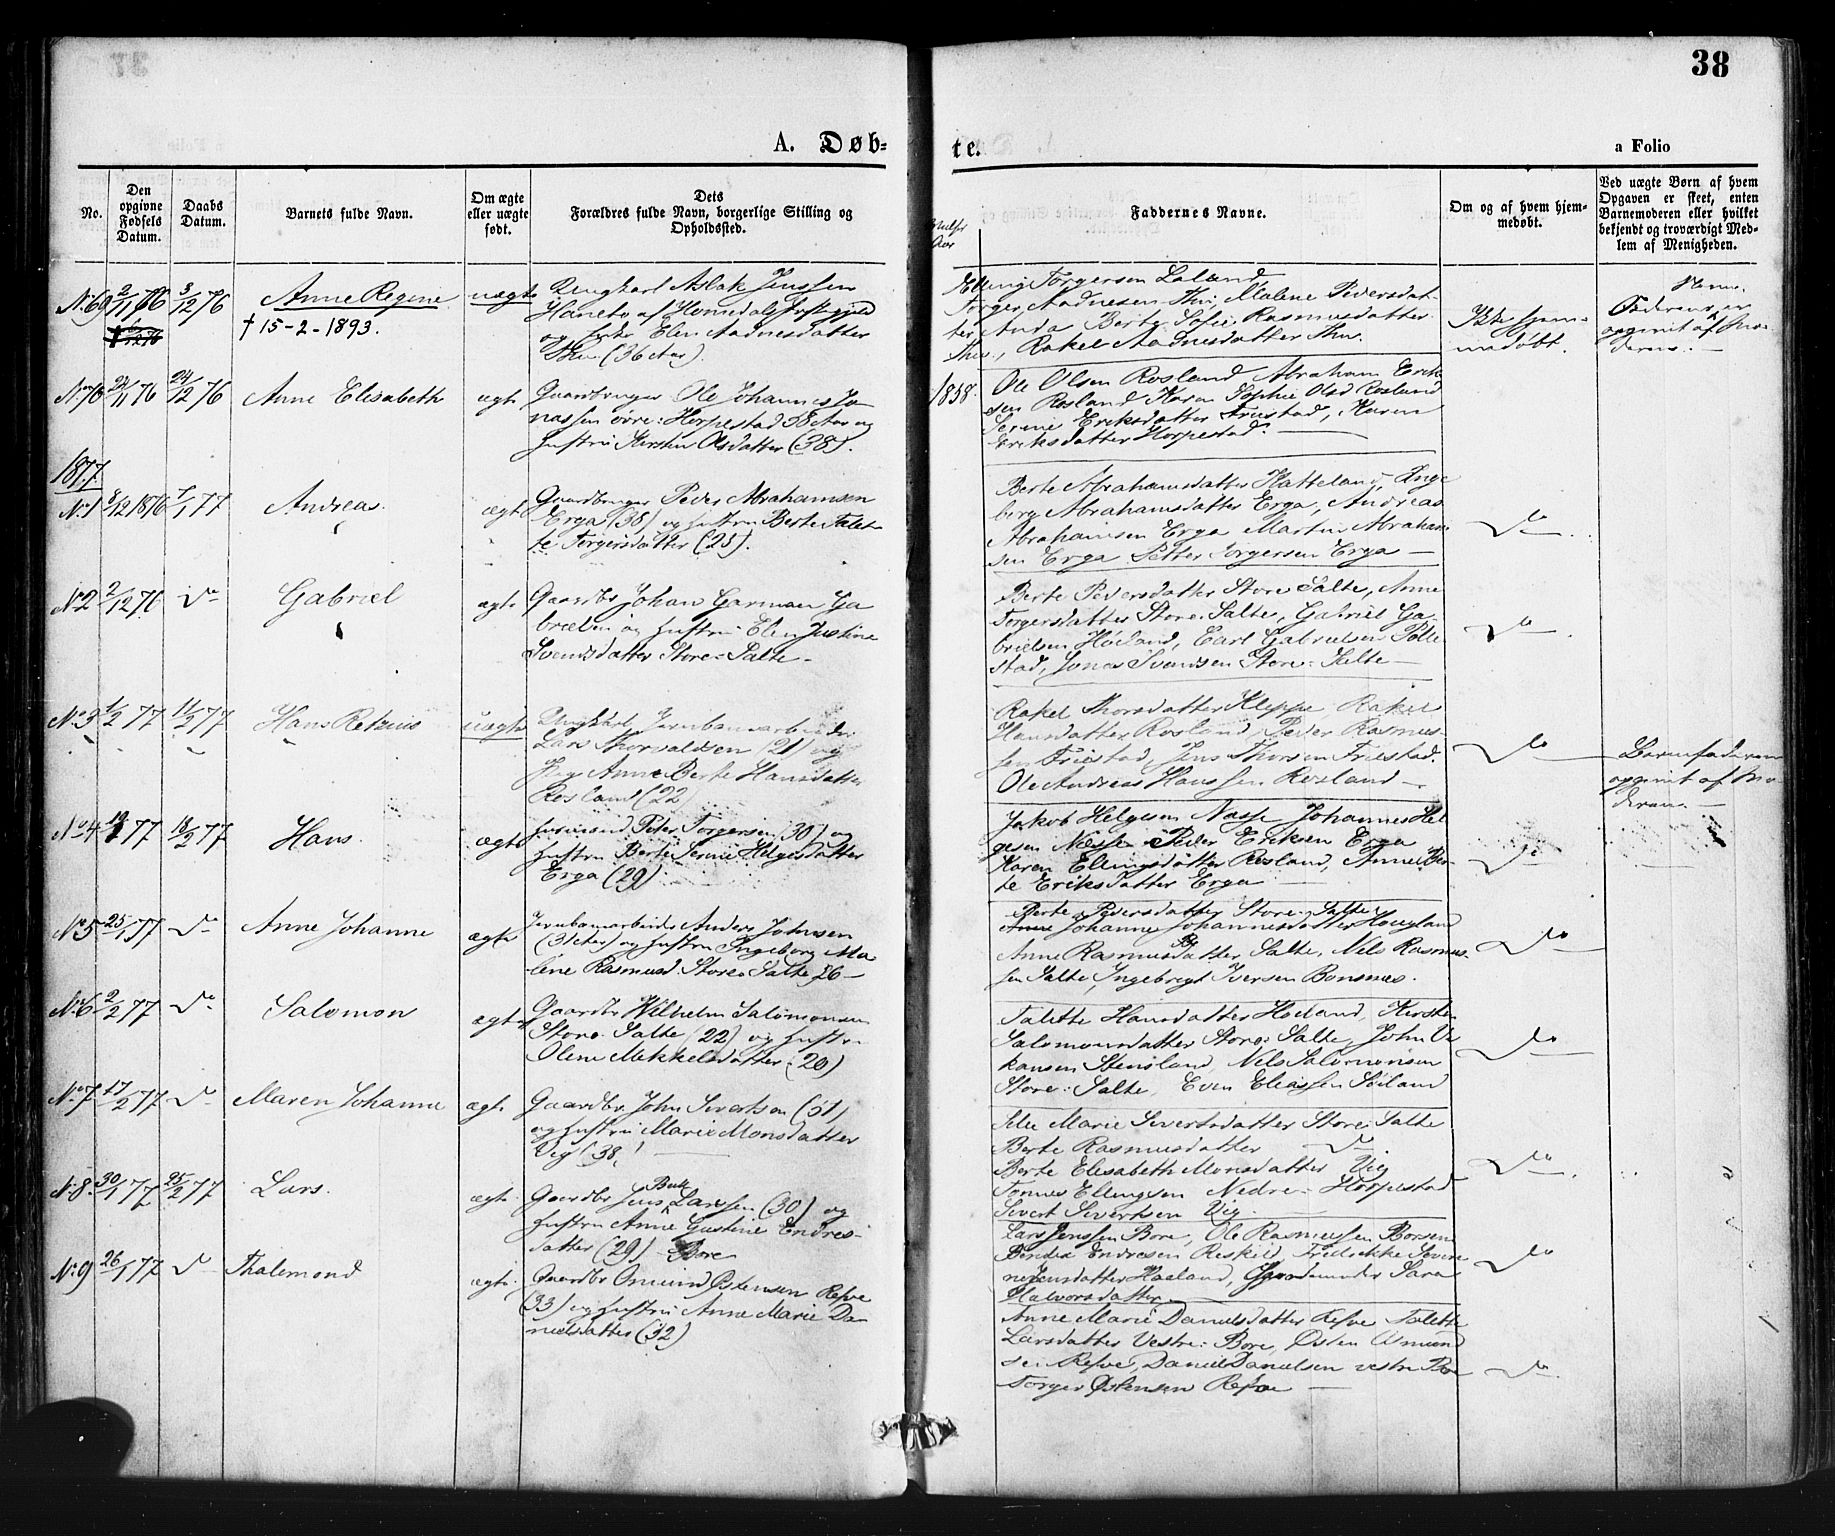 38
A. Døb-
te.
a Folio
No.
Den opgivne Fødsels Datum.
Daabs Datum.
Barnets fulde Navn.
Om ægte eller uægte født.
Dets Forældres fulde Navn, borgerlige Stilling og Opholdssted.
Faddernes Navne.
Om og af hvem hjemmedøbt.
Ved uægte Børn af hvem Opgaven er skeet, enten Barnemoderen eller hvilket bekjendt og troværdigt Medlem af Menigheden.
No 69 2/11 76 3/12 76 Anne Regine uægte
† 15-2-1893.
Ungkarl Aslak Jenssen
Haneto af
og Elen Aadnesdatter
Thu (36 Aar).
Elling Torgersen Laland
Torger Aadnesen Thu, Malene Pedersdat-
ter Anda Berte Sofie Rasmusdatter
Thu, Rakel Aadnesdatter Thu.
Ikke hjem-
medøbt.
Faderen er
opgivet af Mo-
deren.
No 70 24/12 76 Anne Elisabeth ægte
Gaardbruger Ole Johannes Jo
nassen øvre Horpestad 38 Aar og
Hustru Kersten Olsdatter (38).
1838.
Ole Olsen Rosland Abraham Erik
sen Rosland Karen Sophie Olsd Rosland
Serine Eriksdatter Friestad, Karen
Eriksdatter Horpestad.
1877.
No 1 8/12 1876 7/1 77 Andreas ægte
Gaardbruger Peder Abrahamsen
Erga (38) og Hustru Berte Talet-
te Torgersdatter (25).
Berte Abrahamsdatter Hatteland, Inge
berg Abrahamsdatter Erga, Andreas
Abrahamsen Erga Martin Abraham
sen Erga Petter Torgersen Erga
do
No 2 2/12 76 do Gabriel ægte
Gaardbr Johan Garman Ga
brielsen og Hustru Elen Justine
Svendsdatter Store Salte
Berte Pedersdatter Store Salte, Anne
Torgersdatter Store Salte, Gabriel Ga-
brielsen Høiland, Carl Gabrielsen Polle
stad, Jonas Svendsen Store Salte
do
No 3 1/2 77 11/2 77 Hans Retzius uægte
Ungkarl Jernbanearbeider
Lars Thorvaldsen (21) og
Pige Anne Berte Hansdatter
Rosland (22)
Rakel Thorsdatter Kleppe Rakel
Hansdatter Rosland, Peder Rasmus-
sen Friestad, Jens Thorsen Friestad.
Ole Andreas Hanssen Rosland
do
Barnefaderen
opgivet af Mo-
deren.
No 4 77 18/2 77 Hans ægte
Peder Torgersen (30) og
Hustru Berte Serine Helgesdatter
Erga (29)
Jakob Helgesen Næsse Johannes Hel
gesen Næsse Peder Eriksen Erga
Karen Ellingsdatter Rosland, Anne Ber-
te Eriksdatter Erga
do
No 5 25/1 77 do Anne Johanne ægte
Jernbanearbeider Anders Johnsen
(31 Aar) og Hustru Ingeborg Ma
lene Rasmusd. Store Salte 26
Berte Pedersdatter Store Salte
Johanne Johannesdatter Haugland
Anne Rasmusdatter Salte, Nils Rasmus-
sen Salte, Ingebregt Iversen Bonsnæs.
do
No 6 2/2 77 do Salomon ægte
Gaardbr Wilhelm Salomonsen
Store Salte (22) og Hustru
Oline Mikkelsdatter (20)
Talette Hansdatter Høiland, Kersten
Salomonsdatter Store Salte, John Ha
kansen Stensland, Nils Salomonsen
Store Salte, Even Eliassen Søiland
do
No 7 17/2 77 do Maren Johanne ægte
Gaardbr. John Sivertsen (51)
og Hustru Marie Monsdatter
Vig (38)
Marie Sivertsdatter Store Salte
Berte Rasmusdatter do
Berte Elisabeth Monsdatter Vig
Tonnes Ellingsen Nedre Horpestad
Sivert Sivertsen Vig
do
No 8 30/1 77 25/2 77 Lars ægte
Gaardbr Jens Larssen (30) og
Hustru Anne Gustine Endres-
datter (29) Bore
Lars Jenssen Bore, Ole Rasmussen Borsen
Endresen Reskid, Fredrikke Severi
ne Jensdatter Haaland, Gjordemoder Sara
Halvorsdatter
do
No 9 26/1 77 do Thalemond ægte
Gaardbr Omund Østensen Refve
(33) og Hustru Anne Marie Da-
nielsdatter (32)
Anne Marie Danielsdatter Refve Talette
Larsdatter Vestre Bore, Østen Asmund
sen Refve, Daniel Danielsen vestre Bore
Torger Østensen Refve
do